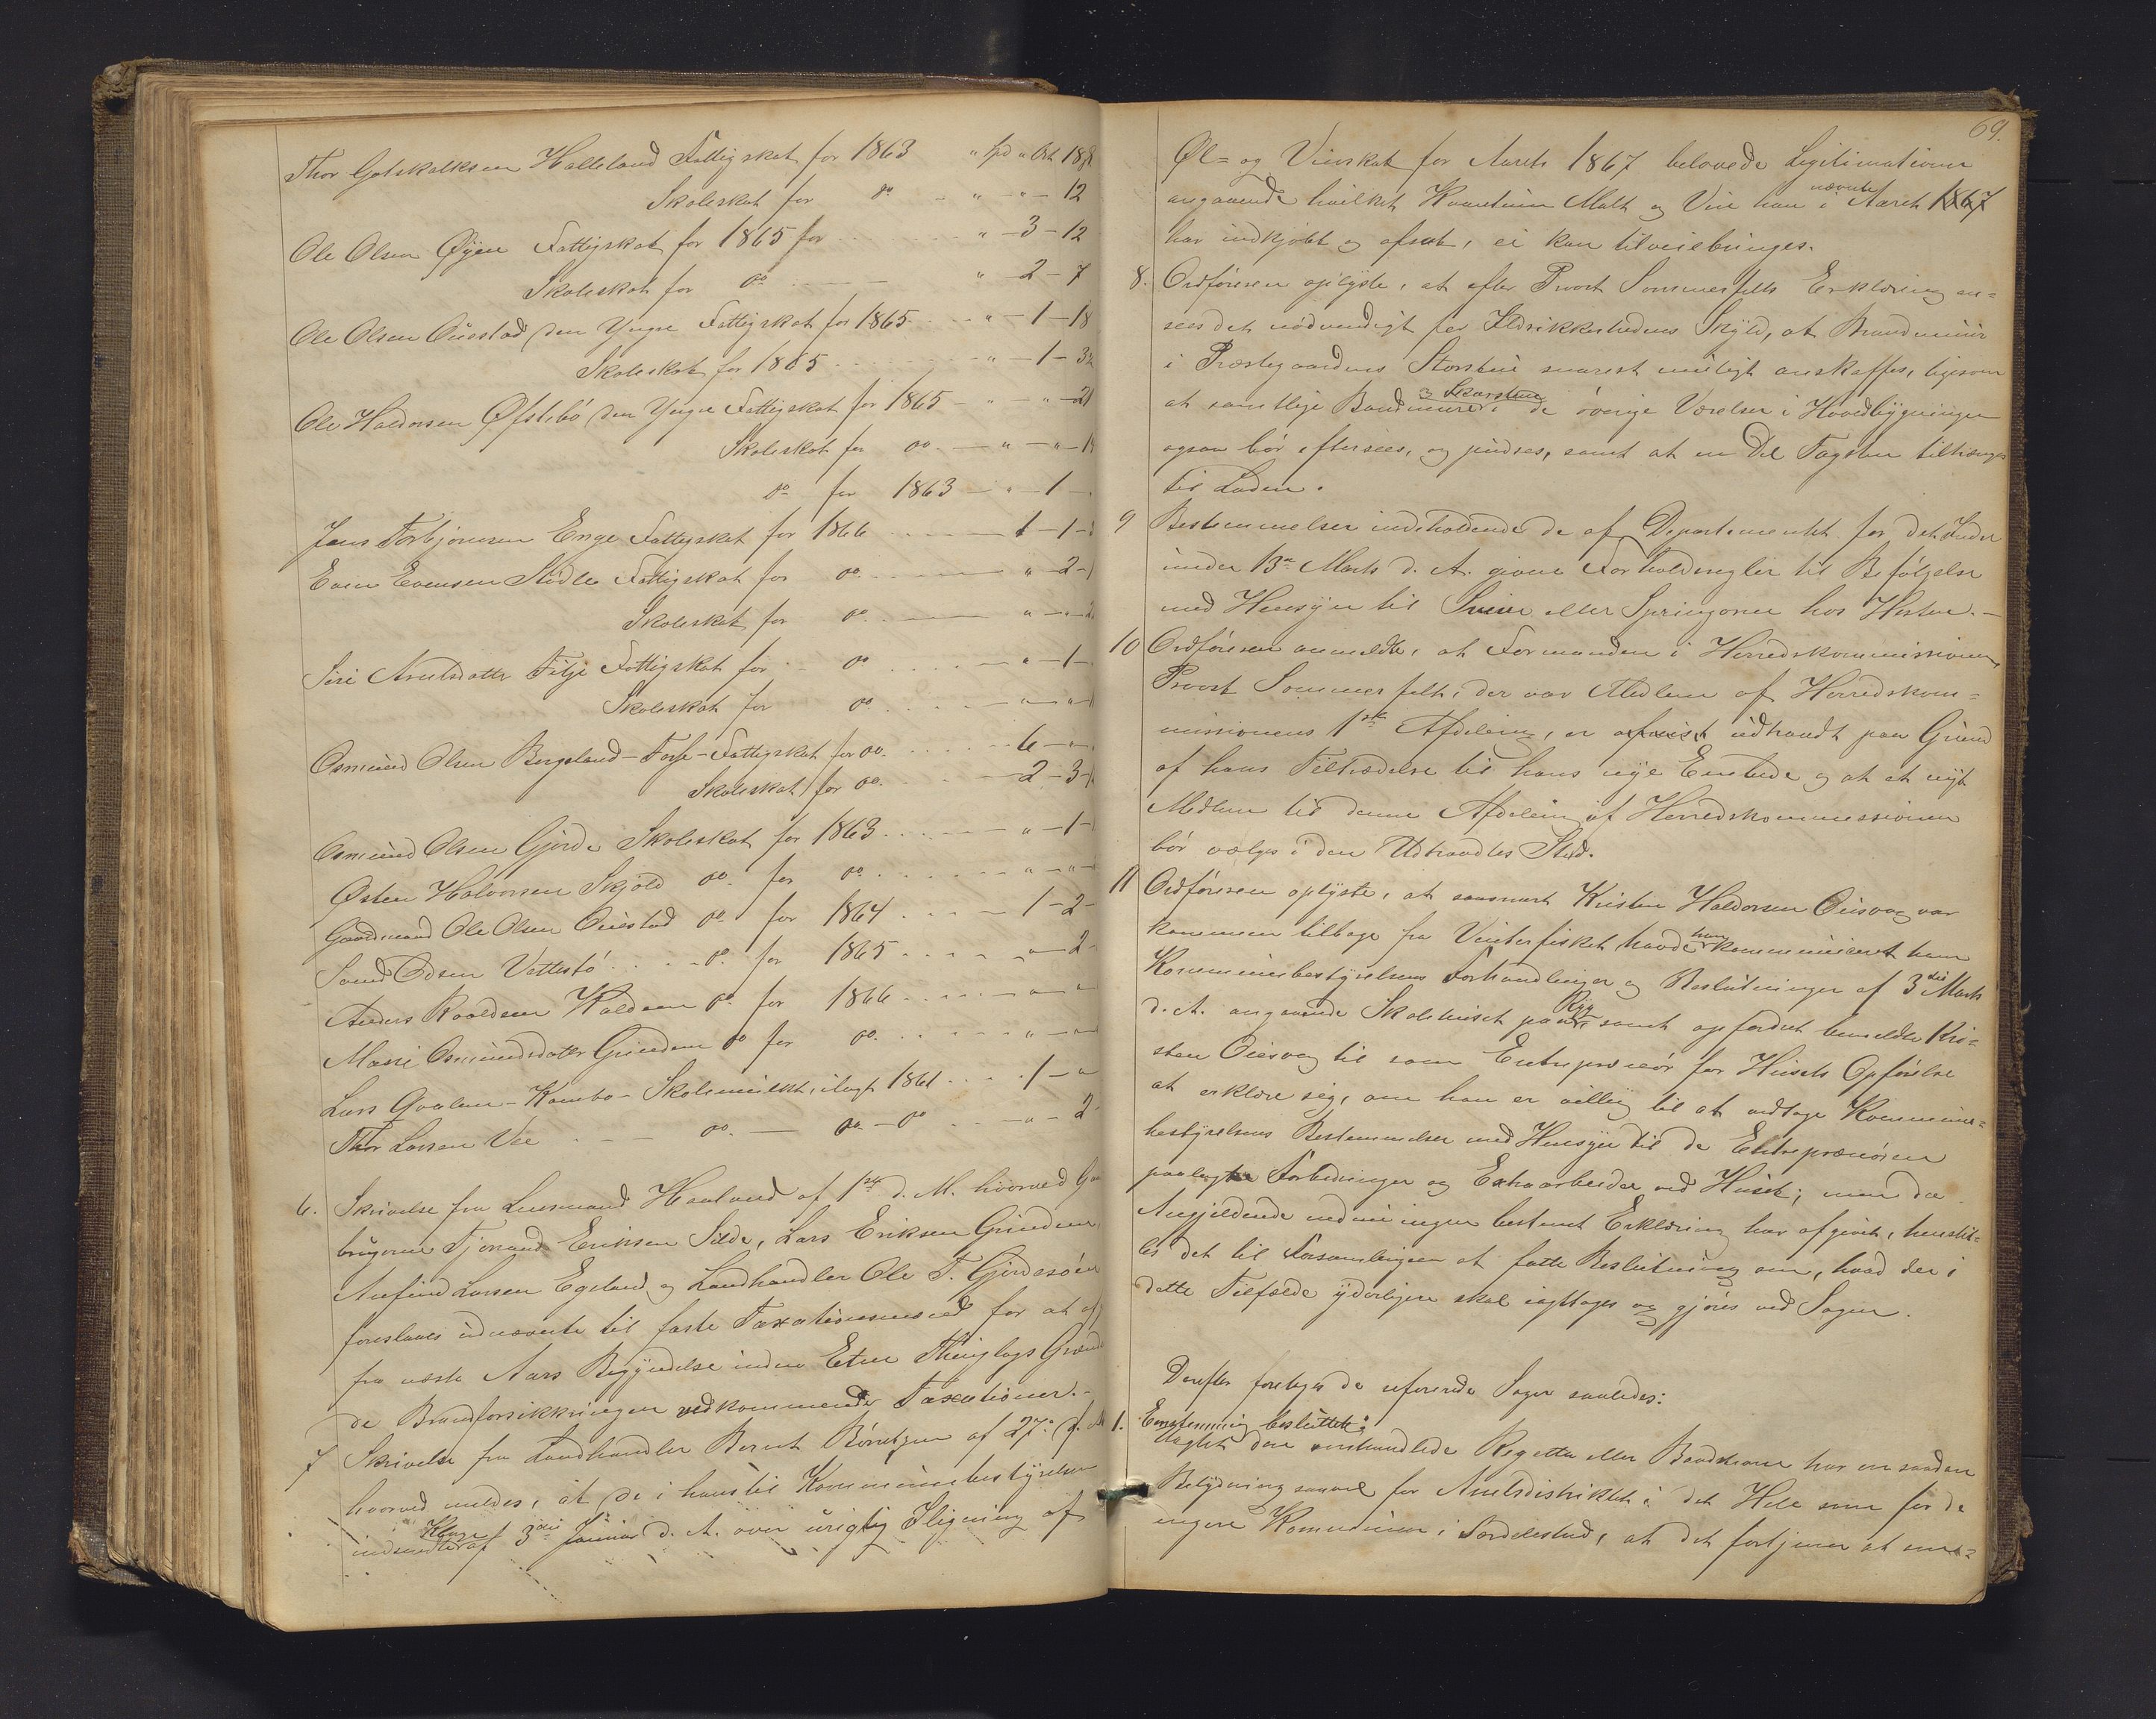 Thor Gotskalksen Halleland Fattigskat for 1863 " Spd " Ort 18
Skoleskat for do - " - " - 12
Ole Olsen Øyen Fattigskat for 1865 for " - 3 - 12
Skoleskat for do " 2 - 7
Ole Olsen Qvestad den Yngre Fattigskat for 1865 " - 1 - 18
Skoleskat for 1865 " - 1 - 3
Ole Haldorsen Øfstebø den Yngre Fattigskat for 1865 - " - " - 21
Skoleskat for do. - " - " - 1
do for 1863 - " - 1 -
Jens Torbjørnsen Enge Fattigskat for 1866 1 - 1 -
Even Evensen Stødle Fattigskat for do. " - 2 -
Skoleskat for do. " - " -
Siri Arnesdatter Tilje Fattigskat for do " - 1 -
Skoleskat for do. " - " -
Osmund Olsen Bergeland - Fattigskat for do. 6 - " -
Skoleskat for do. 2 - 3 -
Osmund Olsen Gjerde Skoleskat for 1863 " - 1 -
Østen Halvorsen Skjold do. for do. " - " -
Gaardmand Ole Olsen Qvestad do. for 1864 1 - 2 -
Vattestø do. for 1865 " - 2 -
Anders Raaldsen Haldsen do. for 1866 " - "
Mari Osmundsdatter Grindem do for do. " - "
Lars - Skolemulkt, ilagt 1861 1 - "
Thor Larsen Vee do. - do. - do " - 2
6. Skrivelse fra Lensmand Haaland af 1ste d. M. hvorved Gaard
brugerne Tjerand Eriksen Silde, Lars Eriksen Grindem,
Anfind Larsen Egeland og Landhandler Ole T. Gjerdesøen
foreslaaes udnævnte til faste Taxationsmænd for at
fra næste Aars Begyndelse inden Etne Thinglags Grænd
de Brandforsikkringen vedkommende Taxationer.-
7 Skrivelse fra Landhandler Berent Børretzen af 27de f.
hvorved meldes, at de i hans til Kommunebestyrelsen
indsendte Klage af 3die Januar d. A. over urigtig Iligning af
69.
Øl- og Viinskat for Aaret 1867 belovede Legitimationer
angaaende hvilket Kvantum Malt og Viin han i nævnte Aaret 1867
har indkjøbt og afsat, ei kan tilveiebringes.
8. Ordføreren oplyste, at efter Provst Sommerfelts Erklæring an-
sees det nødvendigt for Ildsikkerhedens Skyld, at Brandmuur
i Præstegaardens Storstue snarest muligt anskaffes, ligesom
at samtlige Brandmure og Skorstene i de øvrige Værelser i Hovedbygningen
ogsaa bør eftersees, og pudses, samt at en Del Tagsten tiltrænges
til Laden.
9 Bestemmelser indeholdende de af Departementet for det Indre
under 13de Marts d. A. givne Forholdsregler til Befølgelse
med Hensyn til Snive eller Springorm hos Hesten.-
10 Ordføreren anmeldte, at Formanden i Herredskommissionen,
Provst Sommerfelt, der var Medlem af Herredskom-
missionens 1ste Afdeling, er udtraadt paa Grund
af hans Tiltrædelse til hans nye Embede og at et nyt
Medlem til denne Afdeling af Herredskommissionen
bør vælges i den Udtraadtes Sted.
11 Ordføreren oplyste, at saasnart Kristen Haldorsen Øiesvog var
kommen tilbage fra Vinterfisket, havde han kommuniceret ham
Kommunebestyrelsens Forhandlinger og Beslutninger af 3die Marts
d. A. angaaende Skolehuset paa Ryg samt opfordret bemeldte Kri-
sten Øiesvog til som Entreprenør for Husets Opførelse
at erklære sig, om han er villig til at vedtage Kommune-
bestyrelsens Bestemmelser med Hensyn til de Entreprenøren
paalagte Forbedringer og Extraarbeider ved Huset; men da
Angjeldende endnu ingen bestemt Erklæring har afgivet, henstil-
les det til Forsamlingen at fatte Beslutning om, hvad der i
dette Tilfælde yderligere skal iagttages og gjøres ved Sagen.
Derefter foretoges de refererede Sager saaledes:
1. Eenstemmig besluttet:
Uagtet den omhandlede Regatta eller Baadskue har en saadan
Betydning saavel for Amtsdistriktet i det Hele som for de
ingere Kommuner i Særdeleshed, at det fortjener at